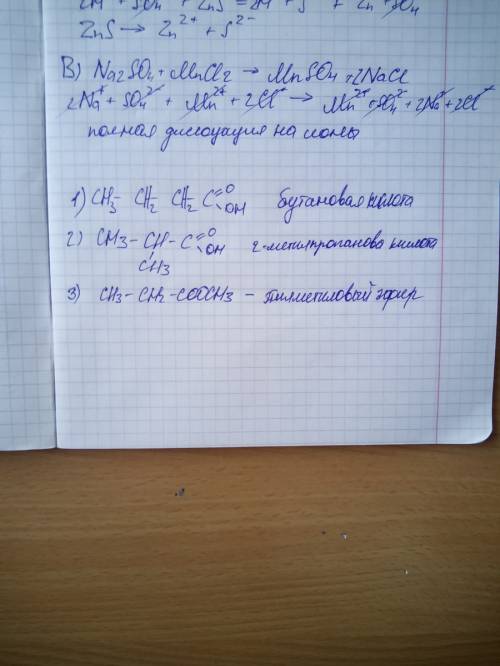 ZnS → Zn²⁺ + S²⁻
В) Na2SO4 + MnCl2 → MnSO4 + 2NaCl
2Na⁺ + SO4²⁻ + Mn²⁺ + 2Cl⁻ → Mn²⁺ + SO4²⁻ + 2Na⁺ + 2Cl⁻
полная диссоциация на ионы
1) CH3- CH2 CH2 C=O OH бутановая кислота
2) CH3 - CH - C=O OH 2-метилпропанова кислота
CH3
3) CH3 - CH2 - COOCH3 - этилметиловый эфир